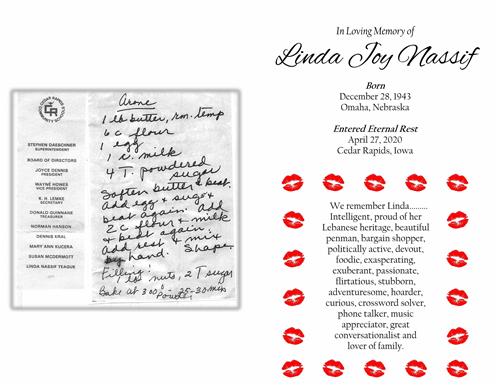 CEDAR RAPIDS
COMMUNITY SCHOOLS
CR
STEPHEN DAESCHNER
SUPERINTENDENT
BOARD OF DIRECTORS
JOYCE DENNIS
PRESIDENT
WAYNE HOWES
VICE PRESIDENT
K. H. LEMKE
SECRETARY
DONALD GUINNANE
TREASURER
NORMAN HANSON
DENNIS KRAL
MARY ANN KUCERA
SUSAN MCDERMOTT
LINDA NASSIF TEAGUE
1 lb butter, rm. temp
6 c flour
1 egg
1 c. milk
4 T. powdered
sugar
Soften butter & beat.
Add egg & sugar
beat again. Add
2 c flour & milk
& beat again.
Add rest & mix
by hand. Shape.
Filling:
1 lb nuts, 2 T sugar
Bake at 300° - 25-30 min
Powder
In Loving Memory of
Linda Joy Nassif
Born
December 28, 1943
Omaha, Nebraska
Entered Eternal Rest
April 27, 2020
Cedar Rapids, Iowa
We remember Linda.........
Intelligent, proud of her
Lebanese heritage, beautiful
penman, bargain shopper,
politically active, devout,
foodie, exasperating,
exuberant, passionate,
flirtatious, stubborn,
adventuresome, hoarder,
curious, crossword solver,
phone talker, music
appreciator, great
conversationalist and
lover of family.